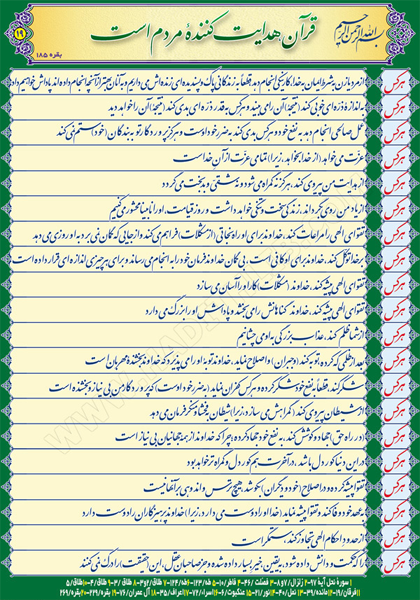 بسم الله الرحمن الرحیم
قرآن هدایت کنندهٔ مردم است
۱۹
بقره ۱۸۵
هرکس از مرد یا زن، با شرط ایمان به خدا، کار نیکی انجام دهد، قطعاً به زندگانی پاک و پسندیده‌ای زنده‌اش می‌داریم و به آنان بهتر از آنچه انجام داده‌اند پاداش خواهیم داد
هرکس به اندازهٔ ذره‌ای خوبی کند، (نتیجهٔ) آن را می‌بیند و هرکس به قدر ذره‌ای بدی کند، (نتیجهٔ) آن را خواهد دید
هرکس عمل صالحی انجام دهد به نفع خود و هرکس بدی کند، به ضرر خود اوست و هرگز پروردگار تو به بندگان (خود) ستم نمی‌کند
هرکس عزت می‌خواهد، (از خدا بخواهد)، زیرا تمامی عزت از آن خداست
هرکس از هدایت من پیروی کند، هرگز نه گمراه می‌شود و نه مشقت و بدبخت می‌گردد
هرکس از یاد من روی گرداند، زندگی سخت و تنگی خواهد داشت و روز قیامت، او را نابینا محشور می‌کنیم
هرکس تقوای الهی را مراعات کند، خداوند برای او راه نجاتی (از مشکلات) فراهم می‌کند و از جایی که گمان نمی‌برد به او روزی می‌دهد
هرکس بر خدا توکل کند، خداوند برای او کافی است، بی‌گمان خداوند فرمان خود را به انجام می‌رساند و برای هر چیزی اندازه‌ای قرار داده است
هرکس تقوای الهی پیشه کند، خداوند (مشکلات) کار او را آسان می‌سازد
هرکس تقوای الهی پیشه کند، خداوند گناهانش را می‌بخشد و پاداش او را بزرگ می‌دارد
هرکس از شما ظلم کند، عذاب بزرگی به او می‌چشانیم
هرکس بعد از ظلمی که کرده، توبه کند و (جبران) و اصلاح نماید، خداوند توبهٔ او را می‌پذیرد که خداوند بخشندهٔ مهربان است
هرکس شکر کند، قطعاً به نفع خود شکر کرده و هرکس کفران نماید، (به ضرر خود اوست) که پروردگار من بی‌نیاز و بخشنده است
هرکس از شیطان پیروی کند، (گمراهش می‌سازد، زیرا) شیطان به فحشا و منکر فرمان می‌دهد
هرکس (در راه حق) جهاد و کوشش کند، به نفع خود جهاد کرده؛ چرا که خداوند از همهٔ جهانیان بی‌نیاز است
هرکس در این دنیا کوردل باشد، در آخرت هم کوردل و گمراه‌تر خواهد بود
هرکس تقوا پیشه کرده و در اصلاح (خود و دیگران) بکوشد، هیچ ترس و اندوهی بر آنها نیست
هرکس به عهد خود وفا کند و تقوا پیشه نماید (خدا او را دوست می‌دارد، زیرا) خداوند پرهیزگاران را دوست دارد
هرکس از حدود و احکام الهی تجاوز کند، ستمکار است
هرکس را حکمت و دانش داده شود، به یقین، خیر بسیار داده شده و جز صاحبان عقل، (این حقیقت را) درک نمی‌کنند
۱ سورهٔ نحل آیهٔ ۹۷-۲ زلزال/۷و۸-۳ فصلت/۴۶-۴ فاطر/۱۰-۵ طه/۱۲۳-۶ طه/۱۲۴-۷ طلاق/۲و۳-۸ طلاق/۳-۹ طلاق/۴-۱۰ طلاق/۵
۱۱ فرقان/۱۹-۱۲ مائده/۳۹-۱۳ نمل/۴۰-۱۴ نور/۲۱-۱۵ عنکبوت/۶-۱۶ اسراء/۷۲-۱۷ اعراف/۳۵-۱۸ آل عمران/۷۶-۱۹ بقره/۲۲۹-۲۰ بقره/۲۶۹